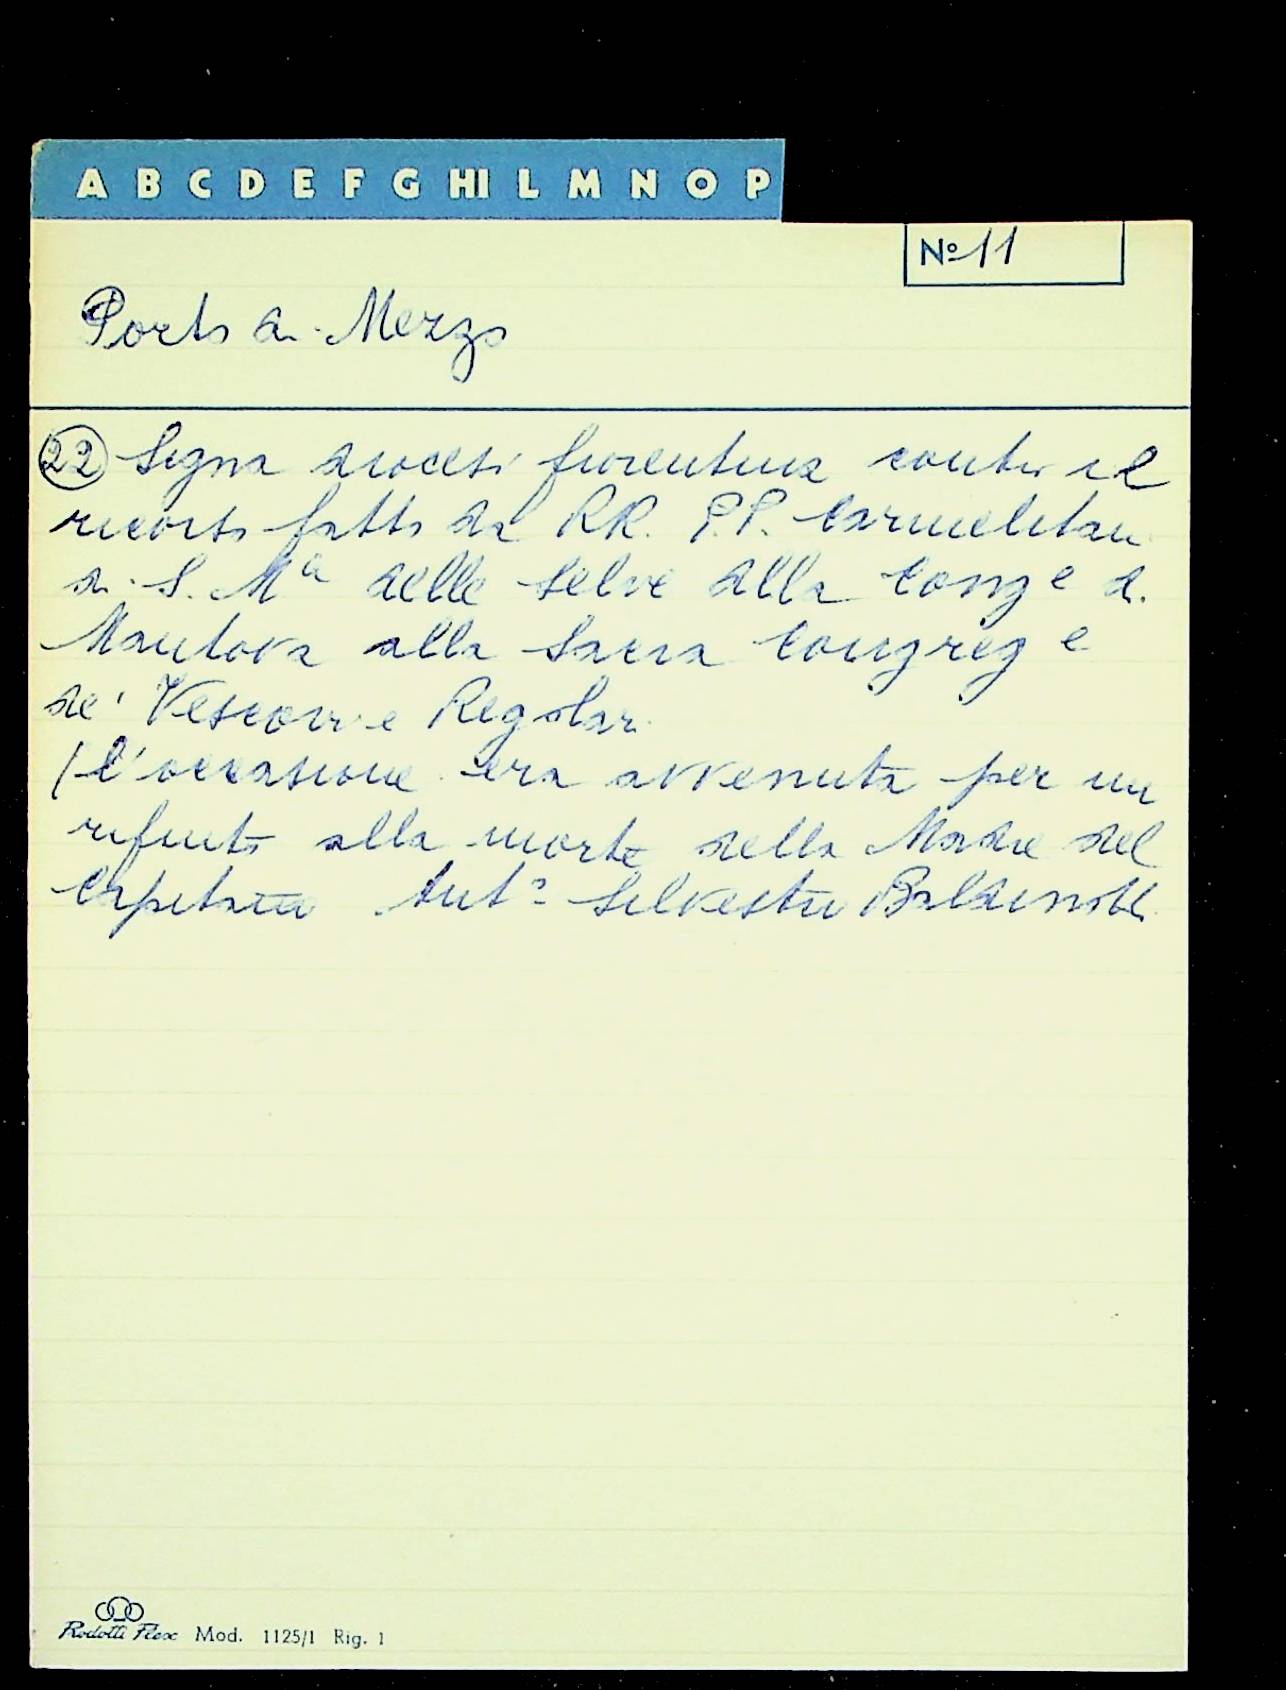 A B C D E F G HI L M N O P
Nº 11
Porto di Mezzo
22 Signa diocesi fiorentina contro il
ricorso fatto da RR. P.P. Carmelitani
di S. Mª delle Selve alla Cong e di
Mantova alla Sacra Congreg e
de' Vescovi e Regolari
(l'occasione era avvenuta per un
rifiuto alla morte della Madre del
Capitano Antº Silvestro Baldinotti
Rodotti Flex Mod. 1125/1 Rig. 1